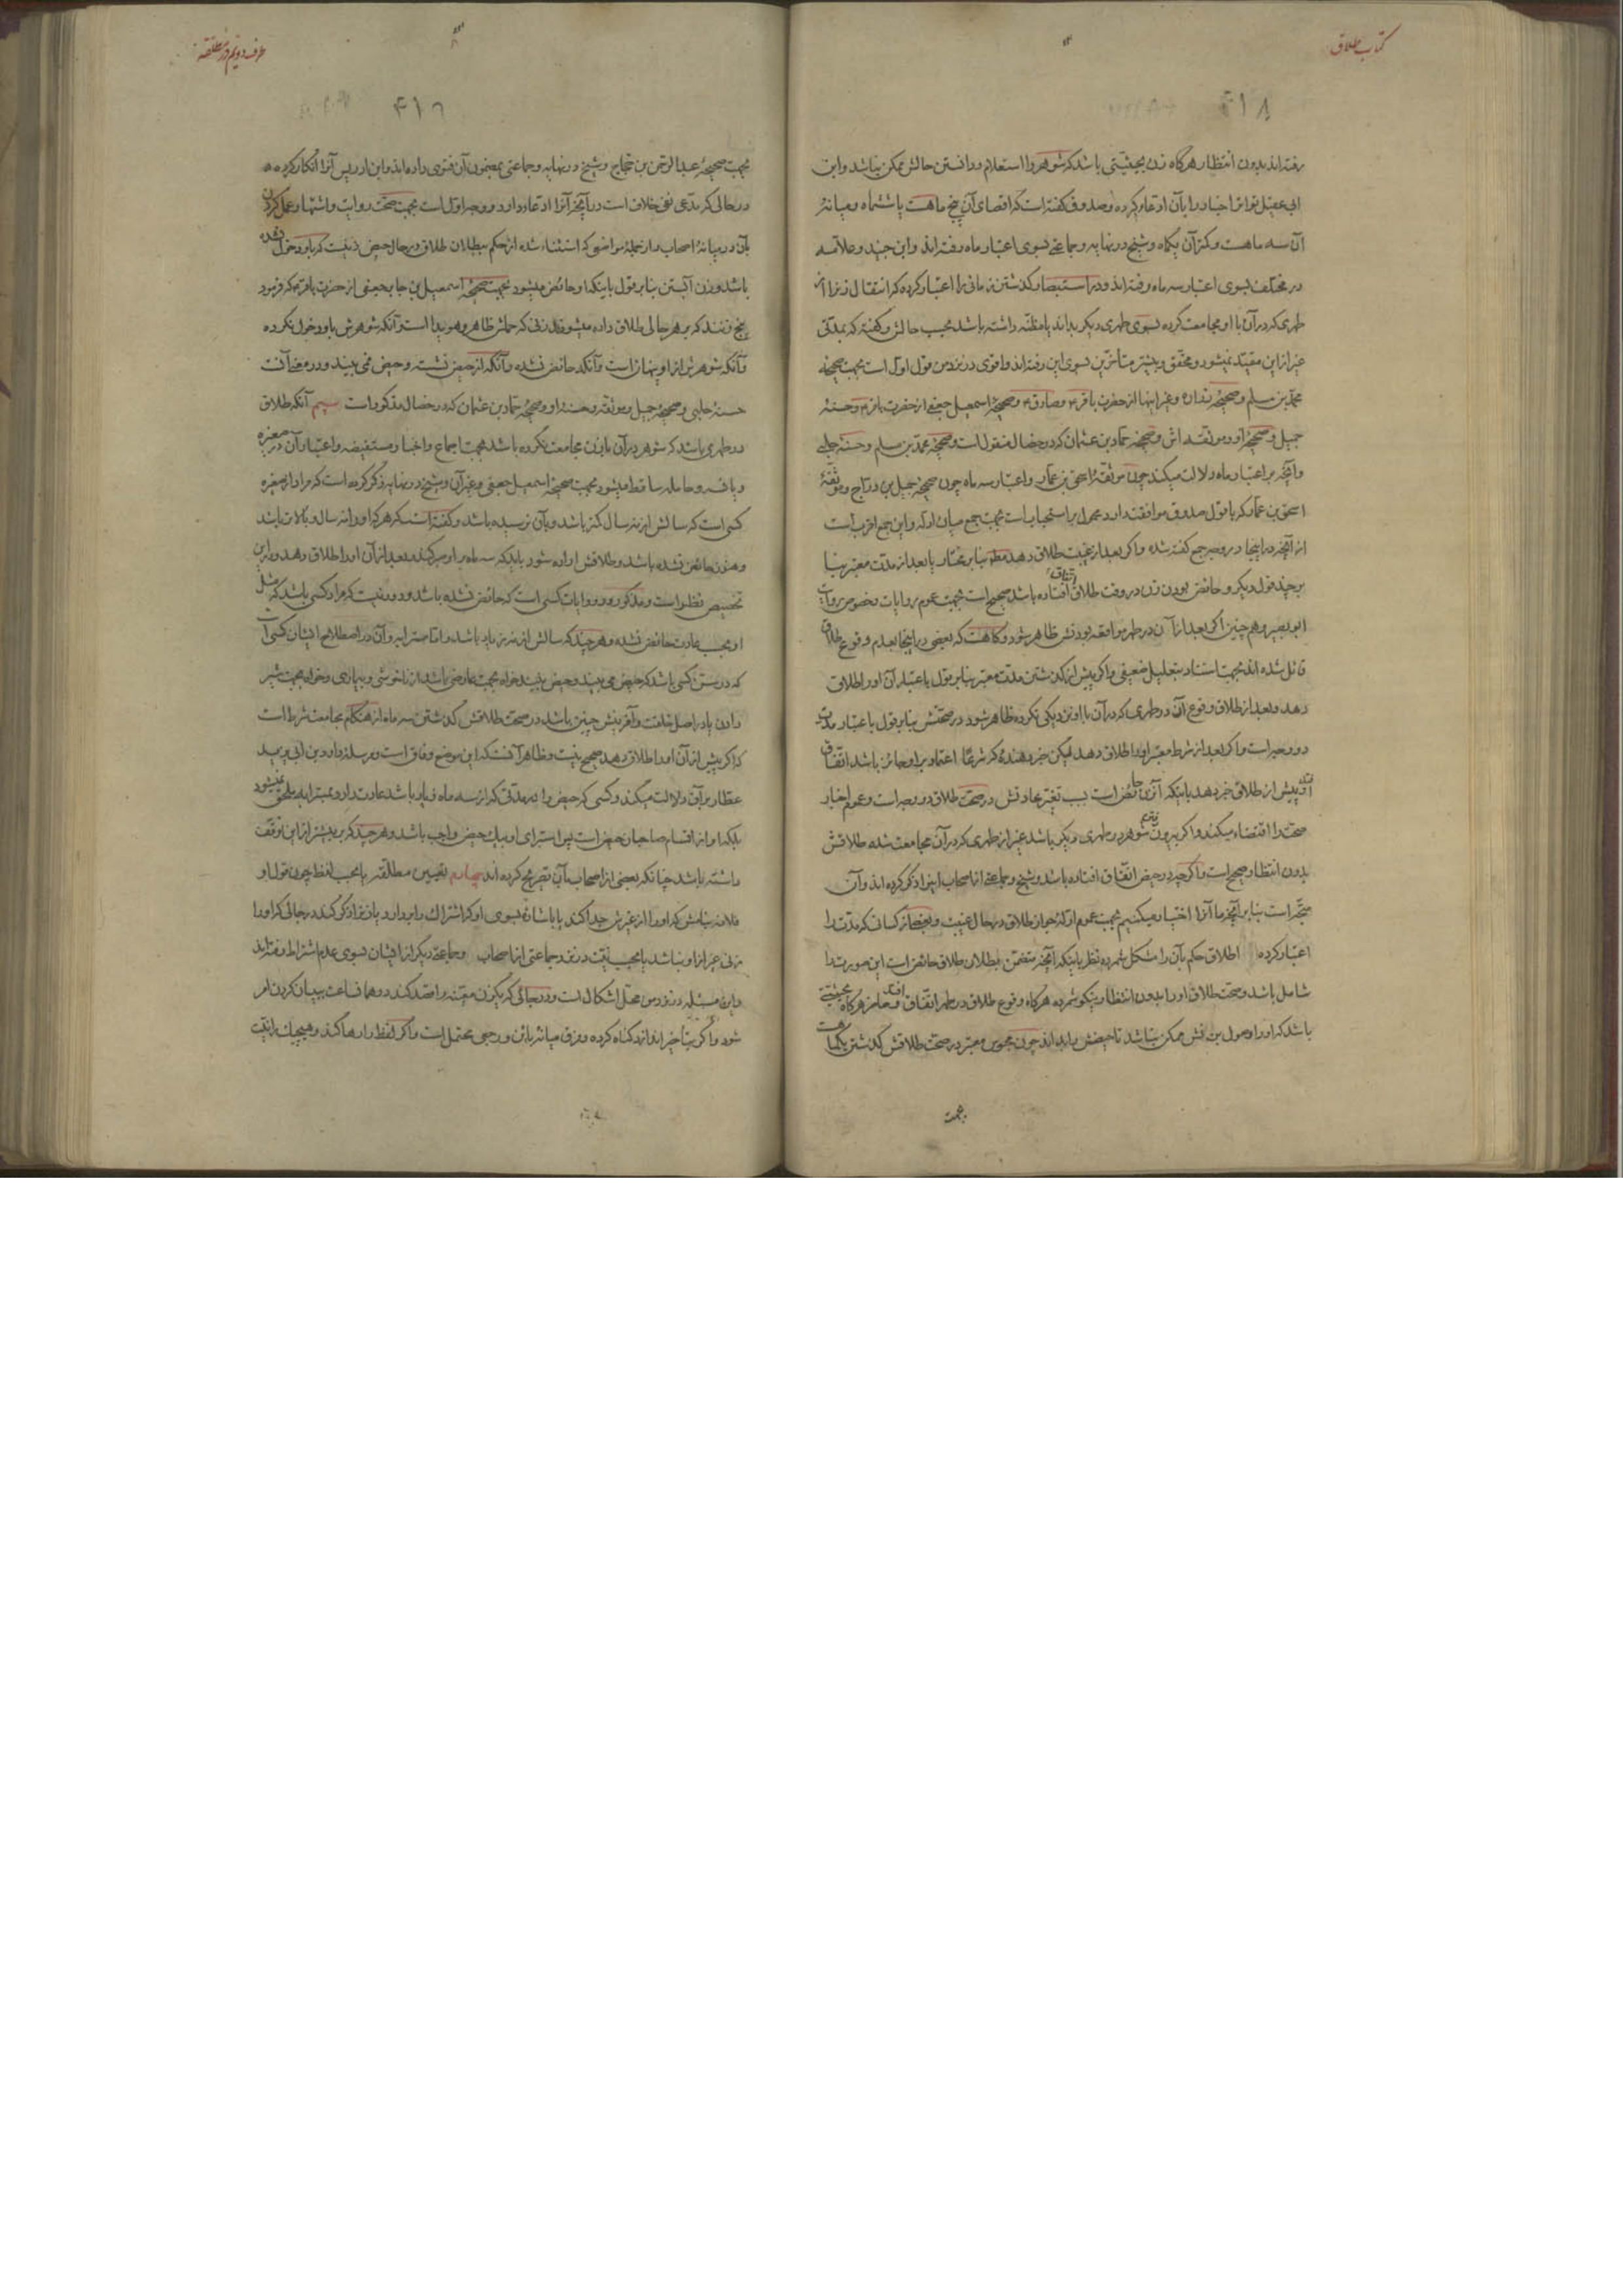 کتاب طلاق
۴۱۸
رفته‌اند بدون انتظار هرگاه زن بحیثیتی باشد که شوهر را استعلام و دانستن حالش ممکن نباشد و ابن
ابی عقیل تواتر اخبار را بآن ادعا کرده و صدوق گفته است که اقصای آن پنج ماهست یا ششماه و میانهٔ
آن سه ماهست و کمتر آن یکماه و شیخ در نهایه و جماعتی بسوی اعتبار ماه رفته‌اند و ابن جنید و علامه
در مختلف بسوی اعتبار سه ماه رفته‌اند و در استبصار گذشتن زمانی را اعتبار کرده که انتقال زن را از
طهری که در آن با او مجامعت کرده بسوی طهری دیگر بداند یا مظنه داشته باشد بحسب حالش و گفته که بمدتی
غیر از این مقید نمیشود و محقق و بیشتر متأخرین بسوی این رفته‌اند و اقوی در نزد من قول اول است بجهت صحیحهٔ
محمد بن مسلم و صحیحهٔ زراره و غیر اینها از حضرت باقر و صادق و صحیحهٔ اسمعیل جعفی از حضرت باقر و حسنهٔ
جمیل و صحیحهٔ او و موثقه‌اش و صحیحهٔ حماد بن عثمان که در خصال منقول است و صحیحهٔ محمد بن مسلم و حسنهٔ حلبی
و آنچه بر اعتبار ماه دلالت میکند چون موثقهٔ اسحق بن عمار و اعتبار سه ماه چون صحیحهٔ جمیل بن دراج و موثقهٔ
اسحق بن عمار که با قول صدوق موافقت دارد محمول بر استحباب است بجهت جمع میان ادله و این جمع اقرب است
از آنچه در اینجا در وجه جمع گفته شده و اگر بعد از غیبت طلاق دهد مطلقا بنا بر مختار یا بعد از مدت معتبر بنا
بر چند قول دیگر و حائض بودن زن در وقت طلاق اتفاق افتاده باشد صحیح است بجهت عموم روایات و خصوص روایت
ابو بصیر و هم چنین اگر بعد از آن در طهر مواقعه بودنش ظاهر شود و گاهست که بعضی در اینجا بعدم وقوع طلاق
قائل شده‌اند بجهت استناد بتعلیل ضعیفی و اگر پیش از گذشتن مدت معتبر بنا بر قول باعتبار آن او را طلاق
دهد و بعد از طلاق وقوع آن در طهری که در آن با او نزدیکی نکرده ظاهر شود در صحتش بنا بر قول باعتبار مدت
دو وجه است و اگر بعد از شرط معتبر او را طلاق دهد لیکن خبر دهندهٔ که شرعا اعتماد بر او جائز باشد اتفاق
افتد پیش از طلاق خبر دهد باینکه آن زن حائض است بسبب تغیر عادتش در صحت طلاق دو وجه است و عموم اخبار
صحت را اقتضاء میکند و اگر بیرون رفتن شوهر در طهری دیگر باشد غیر از طهری که در آن مجامعت شده طلاقش
بدون انتظار صحیح است و اگر چه در حیض اتفاق افتاده باشد و شیخ و جماعتی از اصحاب این را ذکر کرده‌اند و آن
متجه است بنا بر آنچه ما آن را اختیار میکنیم بجهت عموم ادلهٔ جواز طلاق در حال غیبت و بعضی از کسانی که مدت را
اعتبار کرده اطلاق حکم بآن را مشکل شمرده نظر باینکه آنچه متضمن بطلان طلاق حائض است این صورت را
شامل باشد و صحت طلاق او را بدون انتظار نیکو شمرده هرگاه وقوع طلاق در طهر اتفاق افتد و حاضر هرگاه بحیثیتی
باشد که او را وصول بزنش ممکن نباشد تا حیضش را بداند چون محبوس معتبر در صحت طلاقش گذشتن یکماهست
بجهت
طرف دویم در مطلقه
۴۱۹
بجهت صحیحهٔ عبد الرحمن بن حجاج و شیخ در نهایه و جماعتی بمضمون آن فتوی داده‌اند و ابن ادریس آنرا انکار کرده
در حالی که مدعی نفی خلاف است در آنچه آنرا ادعا دارد و وجه اول است بجهت صحت روایت و اشتهار عمل کردن
بآن در میانهٔ اصحاب و از جملهٔ مواضعی که استثناء شده از حکم ببطلان طلاق در حال حیض زنیست که باو دخول نشده
باشد و زن آبستن بنا بر قول باینکه او حائض میشود بجهت صحیحهٔ اسمعیل بن جابر جعفی از حضرت باقر که فرمود
پنج زنند که بر هر حالی طلاق داده میشوند زنی که حملش ظاهر و هویدا است و آنکه شوهرش باو دخول نکرده
و آنکه شوهرش از او پنهان است و آنکه حائض نشده و آنکه از حیض نشسته و حیض نمی بیند و در معنی آنست
حسنهٔ حلبی و صحیحهٔ جمیل و موثقه و حسنهٔ او و صحیحهٔ حماد بن عثمان که در خصال مذکور است سیم آنکه طلاق
در طهری باشد که شوهر در آن با زن مجامعت نکرده باشد بجهت اجماع و اخبار مستفیضه و اعتبار آن در صغیره
و یائسه و حامله ساقط میشود بجهت صحیحهٔ اسمعیل جعفی و غیر آن و شیخ در نهایه ذکر کرده است که مراد از صغیره
کسی است که سالش از نه سال کمتر باشد و بآن نرسیده باشد و گفته است که هرگاه او را نه سال و بالاتر باشد
و هنوز حائض نشده باشد و طلاقش اراده شود بایدکه سه ماه بر او صبر کند بعد از آن او را طلاق دهد و در این
تخصیص نظر است و مذکور در روایات کسی است که حائض نشده باشد و دور نیست که مراد کسی باشد که مثل
او بحسب عادت حائض نشده و هر چند که سالش از نه زیاد باشد و اما مسترابه و آن در اصطلاح ایشان کسی است
که در سن کسی باشد که حیض می بیند و حیض نبیند خواه بجهت عارضی باشد از ناخوشی و بیماری و خواه بجهت شیر
دادن یا در اصل خلقت و آفرینش چنین باشد در صحت طلاقش گذشتن سه ماه از هنگام مجامعت شرط است
که اگر پیش از آن او را طلاق دهد صحیح نیست و ظاهر آنست که این موضع وفاق است و مرسلهٔ داود بن ابی یزید
عطار بر آن دلالت میکند و کسی که حیض را در مدتی که از سه ماه زیاد باشد عادت دارد بمسترابه ملحق نمیشود
بلکه او از اقسام صاحبان حیض است پس استبرای او بیک حیض واجب باشد و هر چند که بر بیشتر از این توقف
داشته باشد چنانکه بعضی از اصحاب بآن تصریح کرده‌اند چهارم تعیین مطلقه یا بحسب لفظ چون قول او
فلانه بنامش که او را از غیرش جدا کند یا باشارهٔ بسوی او که اشتراک را بردارد یا زن را ذکر کند در جائی که او را
زنی غیر از او نباشد یا بحسب نیت در نزد جماعتی از اصحاب و جماعتی دیگر از ایشان بسوی عدم اشتراط رفته‌اند
و این مسئله در نزد من محل اشکال است و در جائی که یک زن معینه را قصد کند در همان ساعت ببیان کردن امر
شود و اگر بتأخیر اندازد گناه کرده و فرق میانهٔ باین و رجعی محتمل است و اگر لفظ را رها کند و هیچیک را نیت